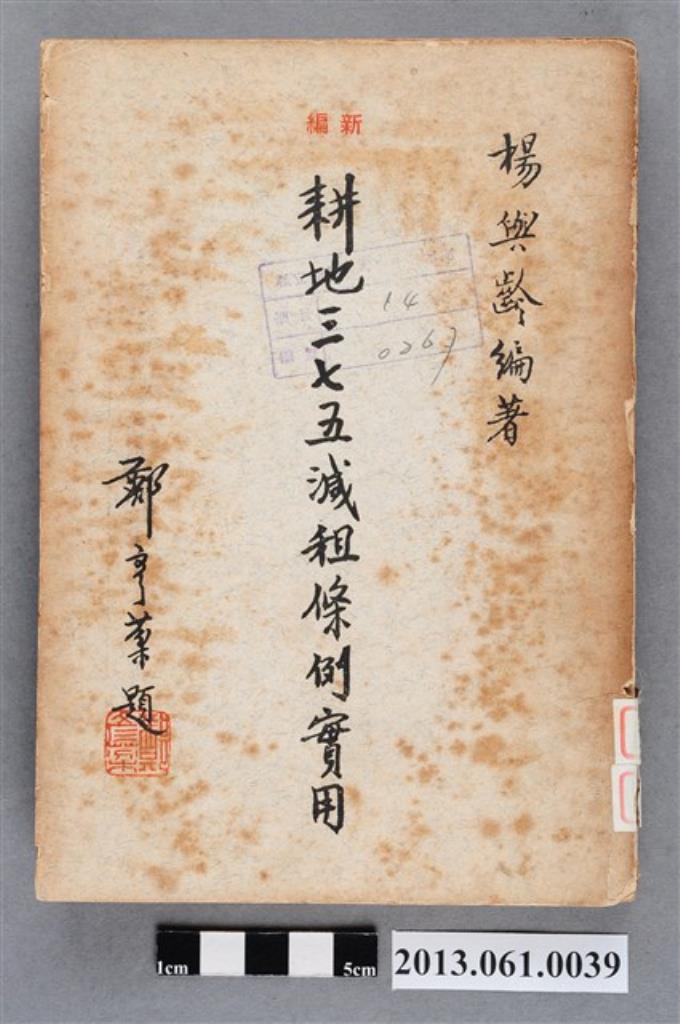 新編
楊與齡編著
耕地三七五減租條例實用
14
0267
鄭亨葉題
1cm
5cm
2013.061.0039